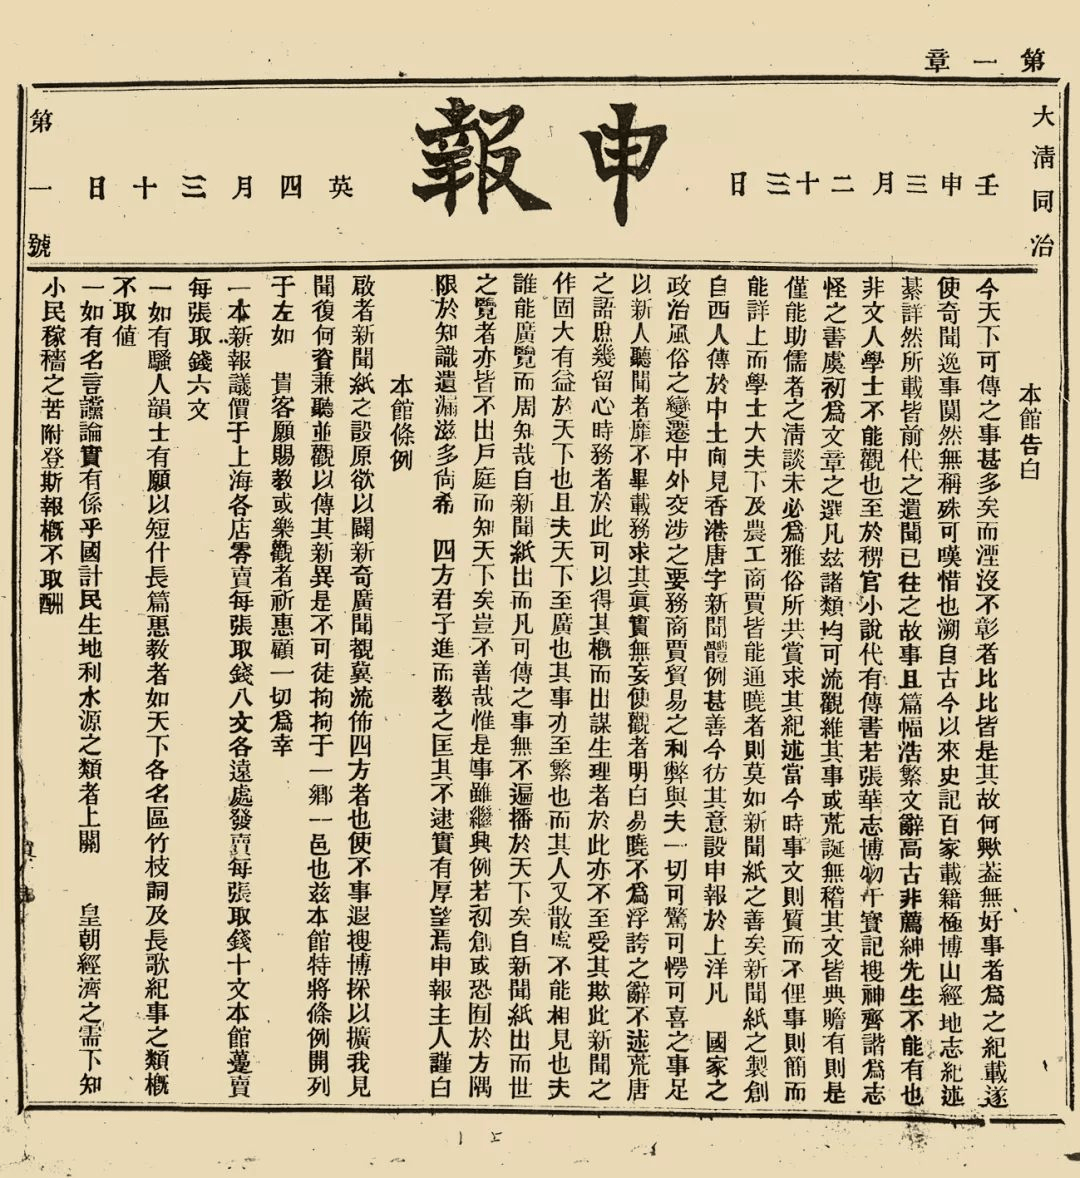 第一章
大清同治
壬申三月二十三日
申報
英四月三十日
第一號
本館告白
今天下可傳之事甚多矣而湮沒不彰者比比皆是其故何歟葢無好事者為之紀載遂
使奇聞逸事闃然無稱殊可嘆惜也溯自古今以來史記百家載籍極博山經地志紀述
綦詳然所載皆前代之遺聞已往之故事且篇幅浩繁文辭高古非薦紳先生不能有也
非文人學士不能觀也至於稗官小說代有傳書若張華志博物干寶記搜神齊諧為志
怪之書虞初為文章之選凡茲諸類均可流觀維其事或荒誕無稽其文皆典贍有則是
僅能助儒者之清談未必為雅俗所共賞求其紀述當今時事文則質而不俚事則簡而
能詳上而學士大夫下及農工商賈皆能通曉者則莫如新聞紙之善矣新聞紙之製創
自西人傳於中土向見香港唐字新聞體例甚善今仿其意設申報於上洋凡　國家之
政治風俗之變遷中外交涉之要務商賈貿易之利弊與夫一切可驚可愕可喜之事足
以新人聽聞者靡不畢載務求其眞實無妄使觀者明白易曉不為浮誇之辭不述荒唐
之語庶幾留心時務者於此可以得其概而出謀生理者於此亦不至受其欺此新聞之
作固大有益於天下也且夫天下至廣也其事亦至繁也而其人又散處不能相見也夫
誰能廣覽而周知哉自新聞紙出而凡可傳之事無不遍播於天下矣自新聞紙出而世
之覽者亦皆不出戶庭而知天下矣豈不善哉惟是事雖繼興例若初創或恐囿於方隅
限於知識遺漏滋多尚希　四方君子進而教之匡其不逮實有厚望焉申報主人謹白
本館條例
啟者新聞紙之設原欲以闢新奇廣聞覩冀流佈四方者也使不事遐搜博採以擴我見
聞復何資兼聽並觀以傳其新異是不可徒拘拘于一鄉一邑也茲本館特將條例開列
于左如　貴客願賜教或樂觀者祈惠顧一切為幸
一本新報議價于上海各店零賣每張取錢八文各遠處發賣每張取錢十文本館躉賣
每張取錢六文
一如有騷人韻士有願以短什長篇惠教者如天下各名區竹枝詞及長歌紀事之類概
不取値
一如有名言讜論實有係乎國計民生地利水源之類者上關　皇朝經濟之需下知
小民稼穡之苦附登斯報概不取酬